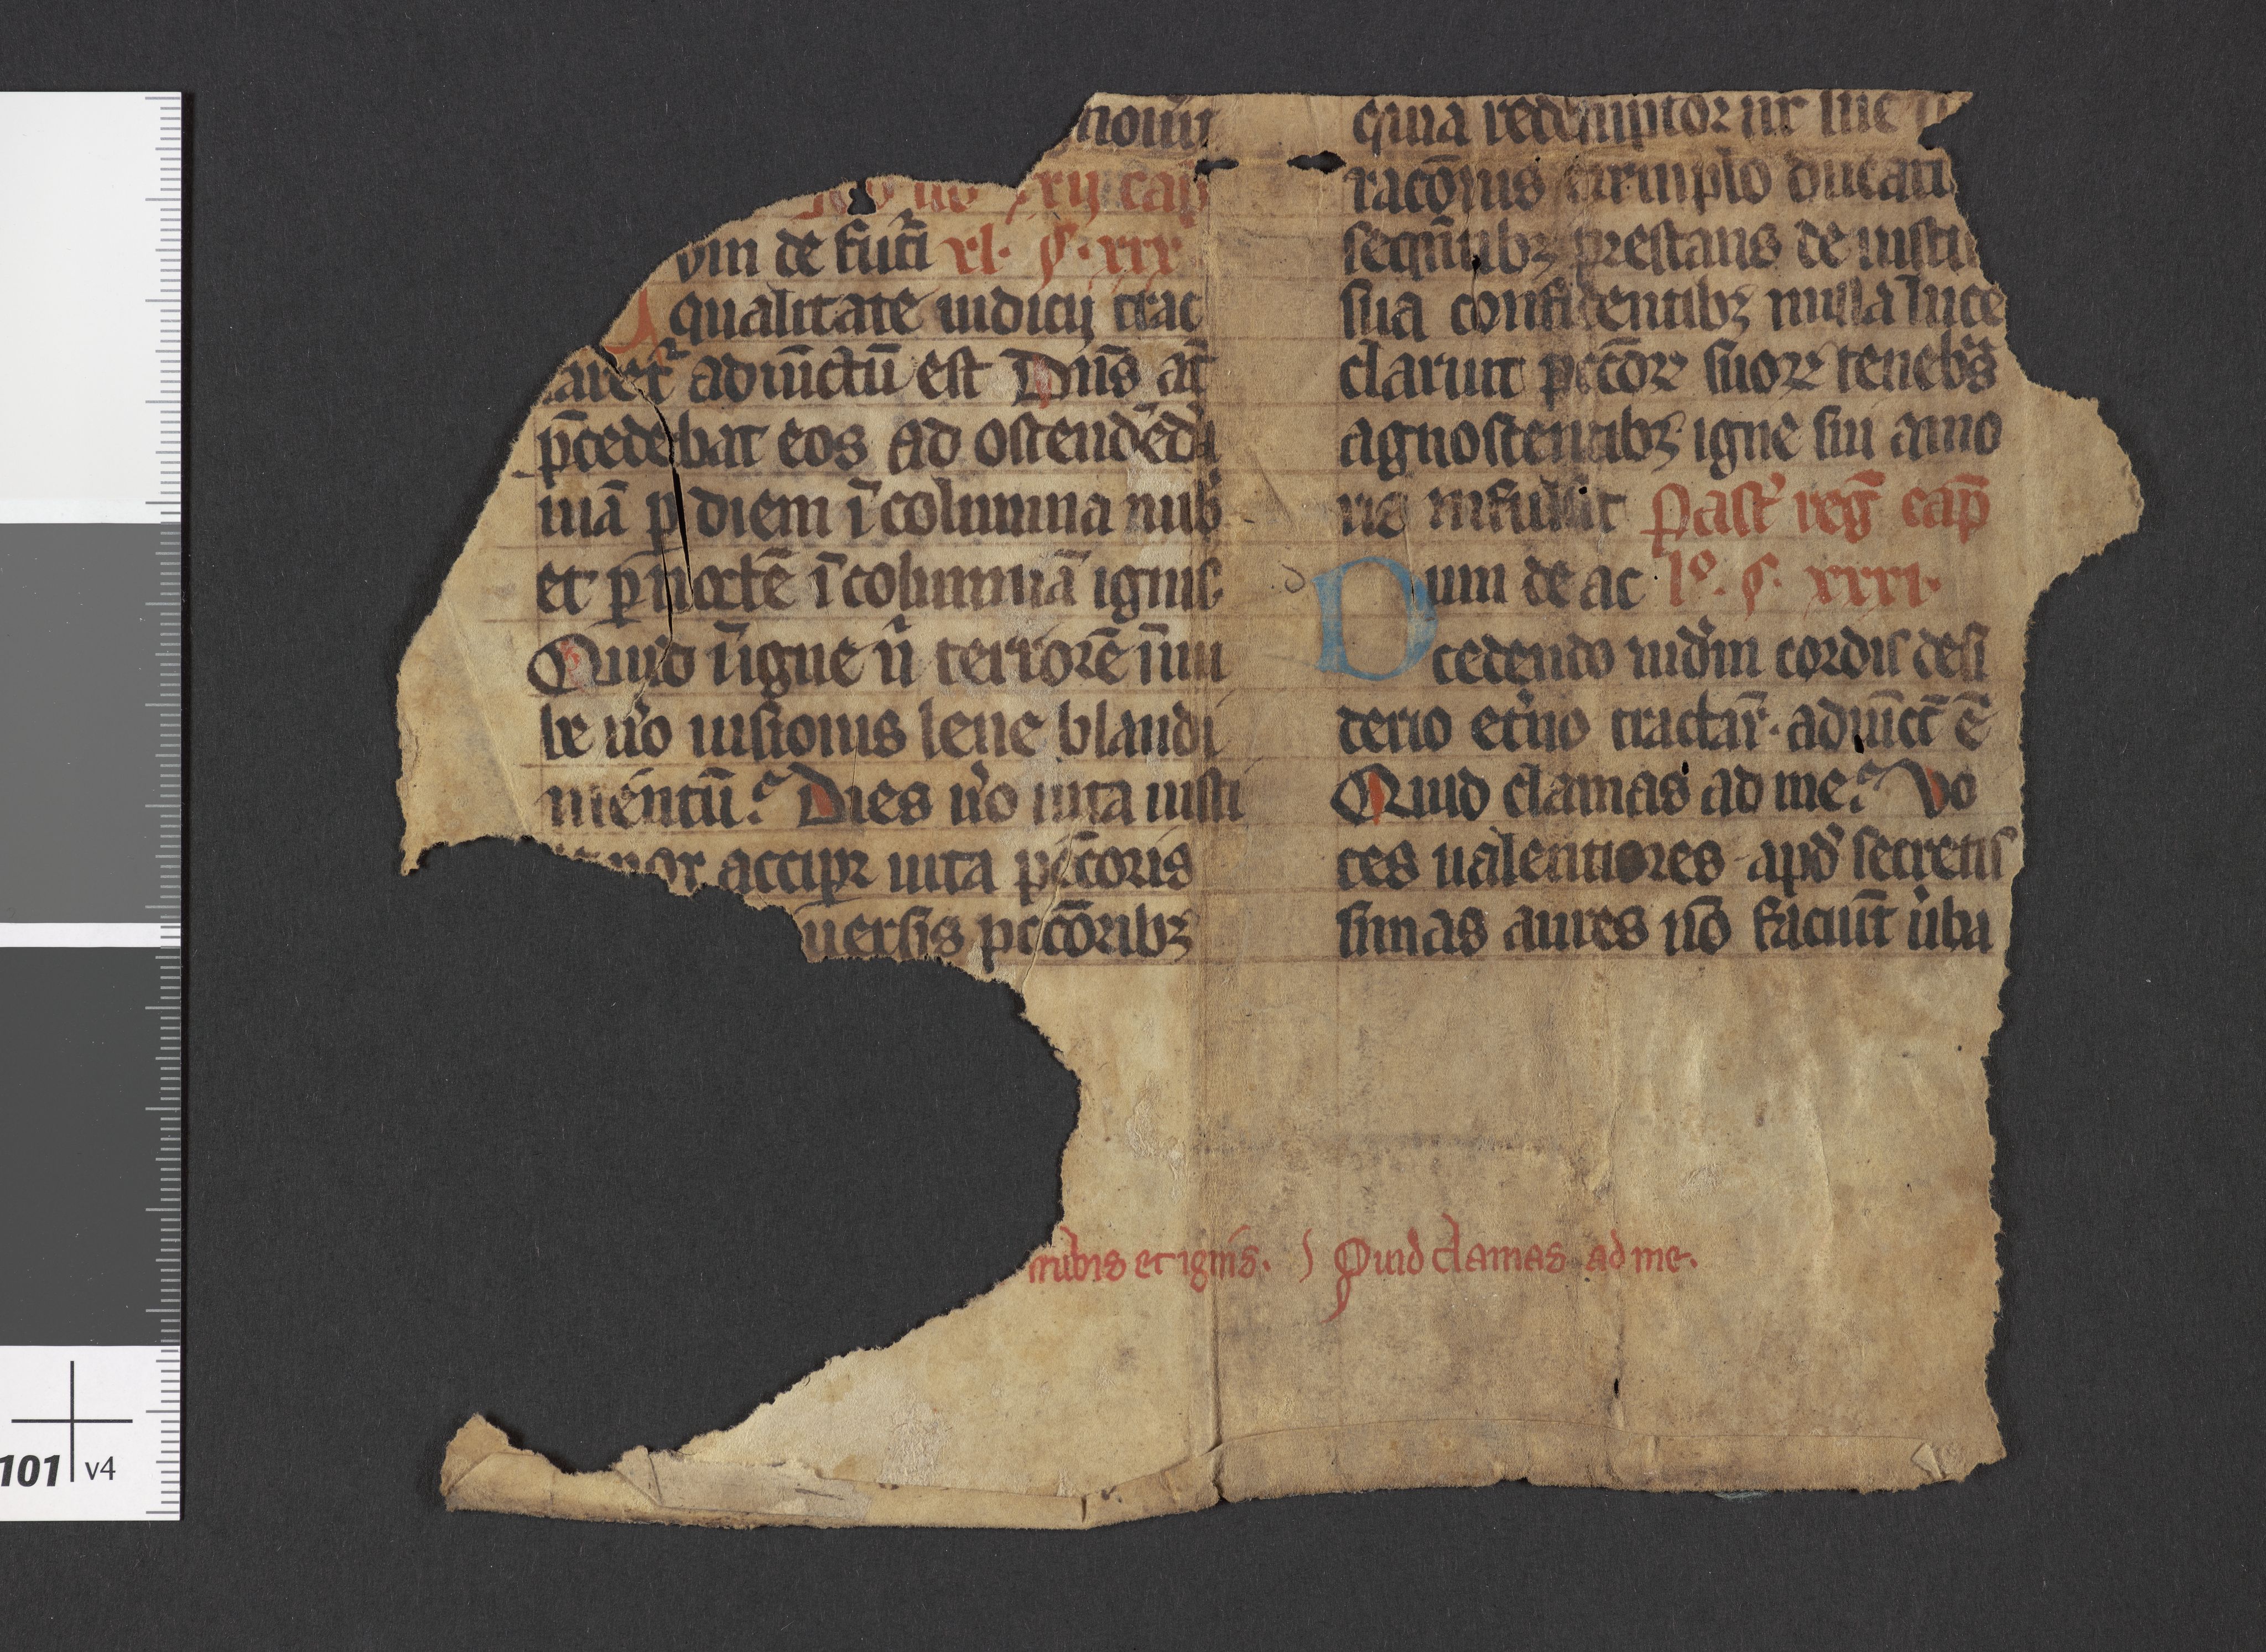 xij cap
vm de futi xl. ꝑ. xxx
qualitate iudicij trac
aret᷑ adiūctū est Dn̄s at̄
p̄cedebat eos ad ostendēdā
uiā ꝑ diem ī columna nub
et ꝑ noctē ī columnā ignis
Quid ī igne n̄ terrorē ī nu
be u̾o uisionis lene blandi
mentū. Dies u̾o uita iusti
nox accipiꝛ uita pctōris
uersis pctōribꝫ
quia redemptor ut luc
racōnis exemplo ducatū
sequētibꝫ prestans de iusti
sua confidentibꝫ nulla luce
claruit pctōꝝ suoꝝ tenebs̄
agnoscentibꝫ igne sui amo
ris infulsit Past reḡ cap̄
Dum de ac lº. ꝑ. xxxi.
cedendo iudiē cordis desi
derio et̾no tractar̄. adiūct̄ ē
Quid clamas ad me. Vo
ces ualentiores apd̾ secretis
simas aures nō faciūt u̾ba
nubis et ignis. ) Quid clamas ad me.